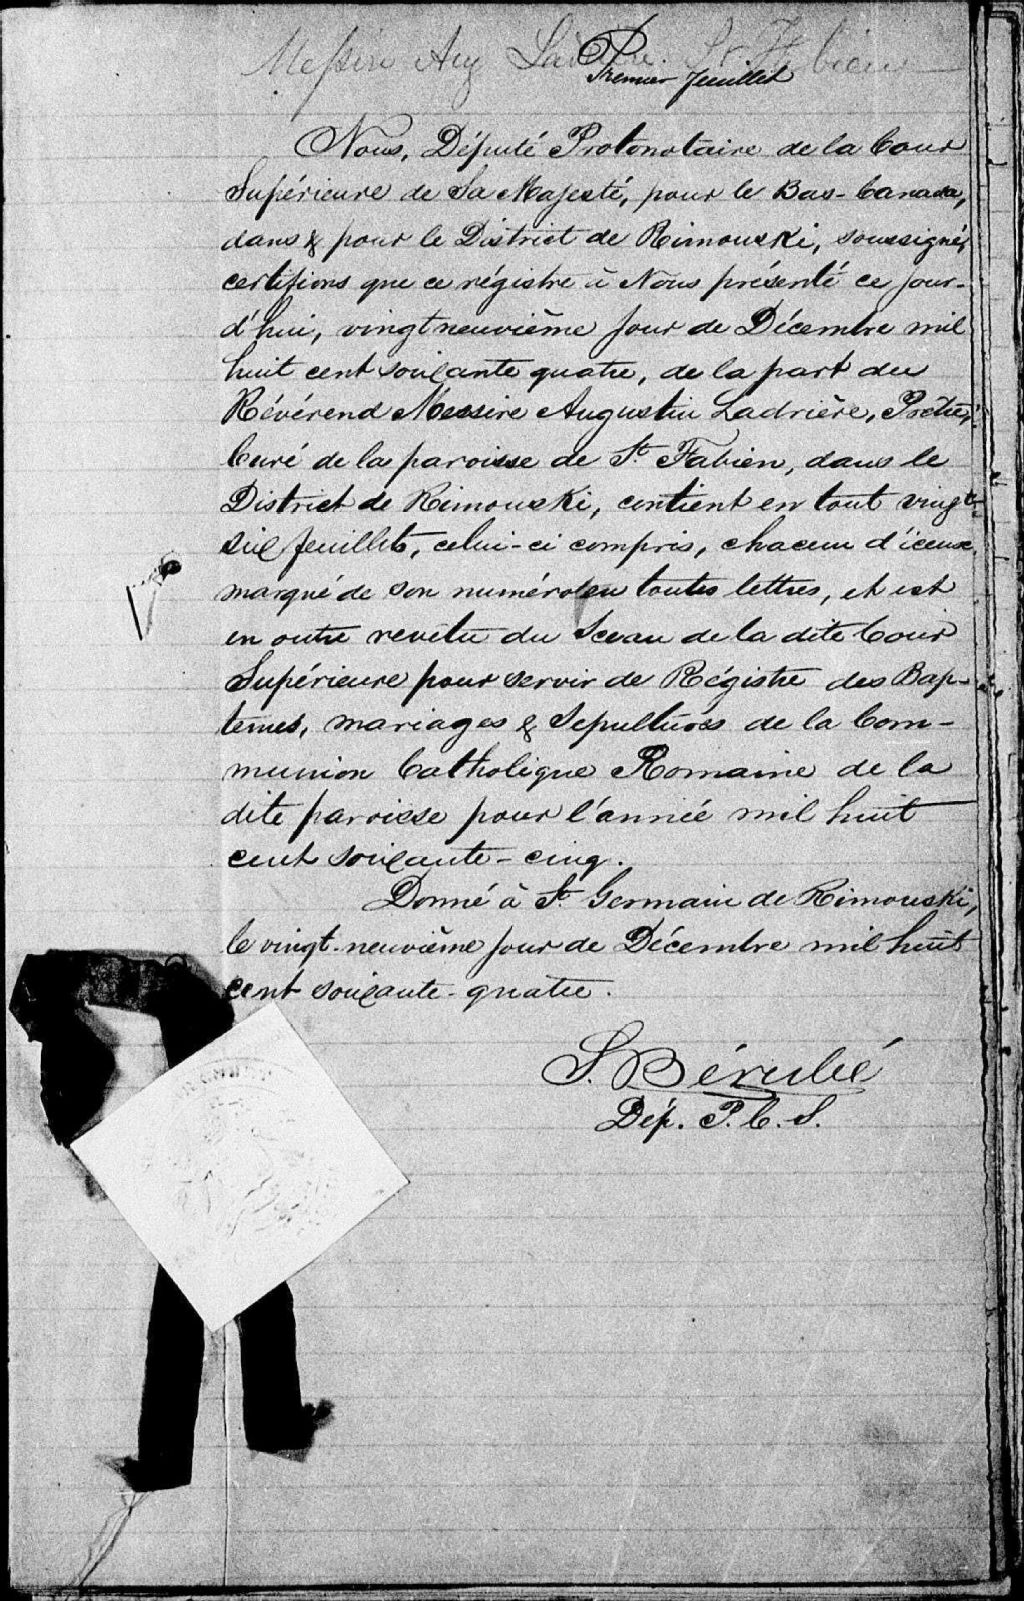 Messire Aug Ladrière. St Fabien
Premier feuillet
Nous, Député Protonotaire de la Cour
Supérieure de Sa Majesté, pour le Bas-Canada,
dans & pour le District de Rimouski, soussigné,
certifions que ce régistre à Nous présenté ce jour-
d'hui, vingt neuvième jour de Décembre mil
huit cent soixante quatre, de la part du
Révérend Messire Augustin Ladrière, Prêtre,
Curé de la paroisse de St. Fabien, dans le
District de Rimouski, contient en tout vingt-
six feuillets, celui-ci compris, chacun d'iceux
marqué de son numéro en toutes lettres, et est
en outre revêtu du Sceau de la dite Cour
Supérieure pour servir de Régistre des Bap-
têmes, mariages & Sépultures de la Com-
munion Catholique Romaine de la
dite paroisse pour l'année mil huit
cent soixante-cinq.
Donné à St. Germain de Rimouski,
le vingt-neuvième jour de Décembre mil huit
cent soixante-quatre.
S. Bérubé
Dép. P. C. S.